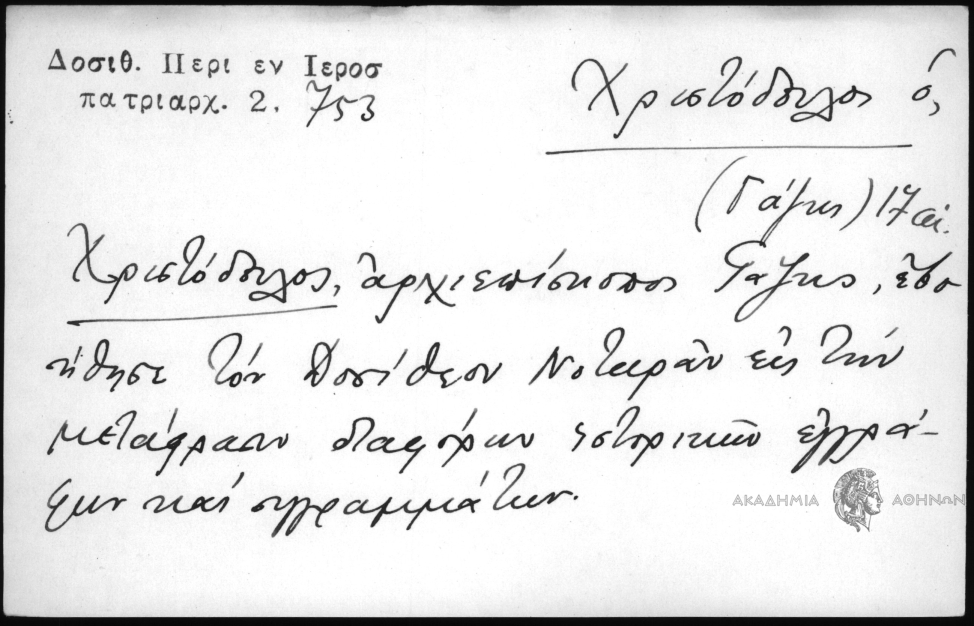 Δοσιθ. Περι εν Ιεροσ
πατριαρχ. 2. 753
Χριστόδουλος ὁ,
(Γάζης) 17 αἰ.
Χριστόδουλος, ἀρχιεπίσκοπος Γάζης, ἐβο
ήθησε τόν Δοσίθεον Νοταρᾶν εἰς τήν
μετάφρασιν διαφόρων ἱστορικῶν ἐγγρά-
φων καί συγγραμμάτων.
ΑΚΑΔΗΜΙΑ ΑΘΗΝΩΝ